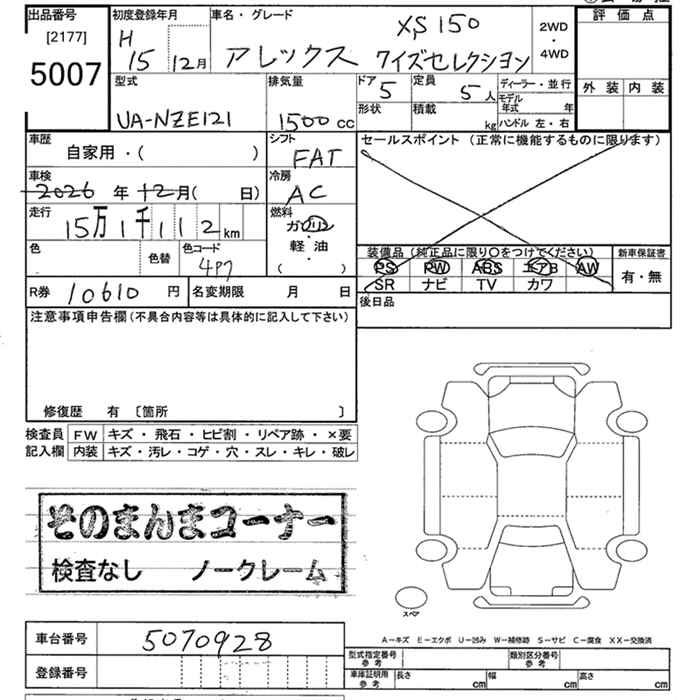 出品番号
[2177]
5007
初度登録年月
H
15 12月
車名・グレード
XS150
アレックス ワイズセレクション
2WD
・
4WD
評価点
外装 内装
型式
UA-NZE121
排気量
1500 cc
ドア
5
定員
5人
形状
積載
kg
ディーラー・並行
モデル年式 年
ハンドル 左・右
車歴
自家用・( )
シフト
FAT
セールスポイント (正常に機能するものに限ります)
車検
2026年12月( 日)
冷房
AC
走行
15万1千112km
燃料
ガソリン
・
軽油
・
( )
色
色替
色コード
4P7
装備品 (純正品に限り○をつけてください)
PS PW ABS エアB AW
SR ナビ TV カワ
新車保証書
有・無
R券 10610 円
名変期限 月 日
後日品
注意事項申告欄(不具合内容等は具体的に記入して下さい)
修復歴 有 [箇所 ]
検査員記入欄
FW キズ・飛石・ヒビ割・リペア跡・×要
内装 キズ・汚レ・コゲ・穴・スレ・キレ・破レ
そのまんまコーナー
検査なし ノークレーム
スペア
A－キズ E－エクボ U－凹み W－補修跡 S－サビ C－腐食 XX－交換済
車台番号 5070928
登録番号
型式指定番号 参考
類別区分番号 参考
車庫証明用 参考
長さ cm
幅 cm
高さ cm